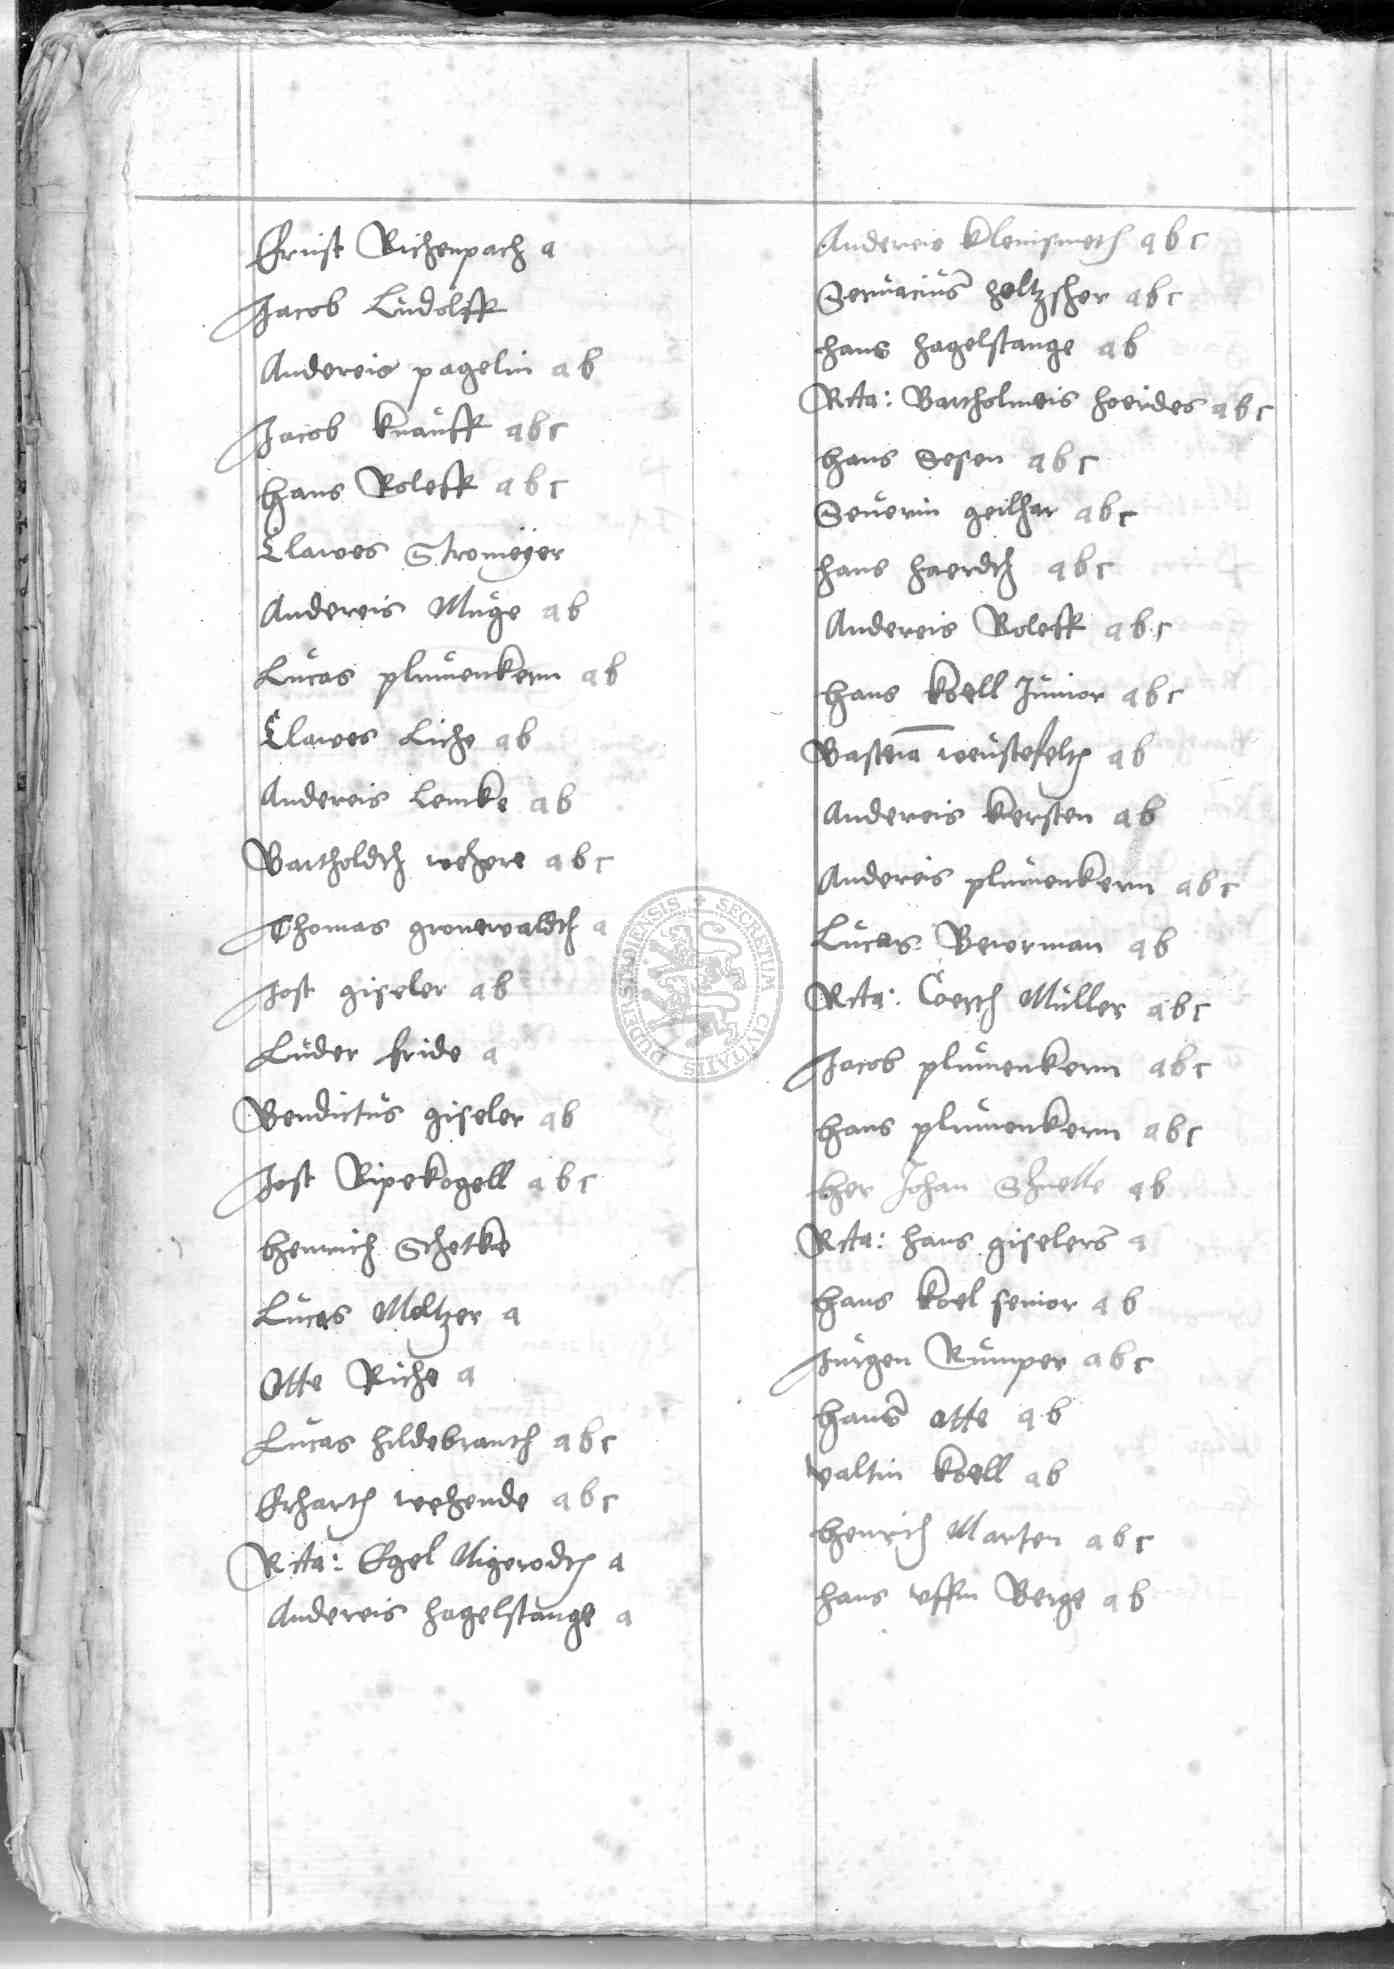 Ernst Bichenpach a
Jacob Ludolff
Andereis pagelin a b
Jacob knauff a b c
Hans Roleff a b c
Clawes Stromeyer
Andereis Muge a b
Lucas plumenkern a b
Clawes Liche a b
Andereis lemke a b
Bartholdth wehere a b c
Thomas gronewaldth a
Jost giseler a b
Luder fride a
Bendictus giseler a b
Jost Ripekogell a b c
Henrich Schetke
Lucas Moltzer a
Otte Riche a
Lucas hildebranth a b c
Erharth wehende a b c
Rcta: Egel Nigerodth a
Andereis hagelstange a
Andereis kleinsmeth a b c
Servacius holtzscher a b c
hans hagelstange a b
Rcta: Bartholmeis hoerdes a b c
Hans Sesen a b c
Severin geilhar a b c
hans haerdth a b c
Andereis Roleff a b c
Hans koell Junior a b c
Bastein weustefelth a b
Andereis kersten a b
Andereis plumenkern a b c
Lucas Beworman a b
Rcta: Coerth Muller a b c
Jacob plumenkern a b c
Hans plumenkern a b c
Her Johan Schnelle a b
Rcta: hans giselers a
Hans koel senior a b
Jurgen Rumper a b c
Hans otte a b
valtin koell a b
Henrich Marten a b c
hans uffm Berge a b
DUDERSTADIENSIS SECRETUM CIVITATIS